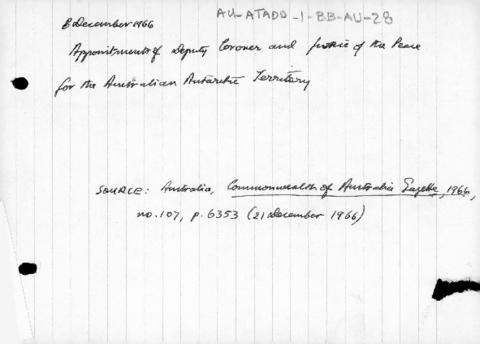 AU-ATADD-1-BB-AU-28
8 December 1966
Appointment of Deputy Coroner and Justice of the Peace
for the Australian Antarctic Territory
SOURCE: Australia, Commonwealth of Australia Gazette, 1966,
no.107, p.6353 (21 December 1966)